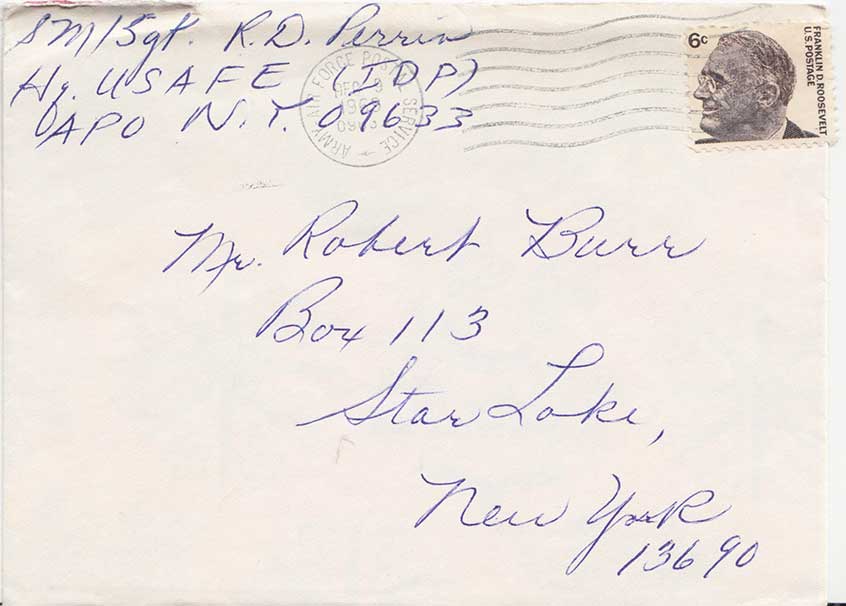 SM/Sgt. R.D. Perrin
Hq. USAFE (IDP)
APO N.Y. 09633
ARMY AIR FORCE POSTAL SERVICE
DEC
6c
FRANKLIN D. ROOSEVELT
U.S. POSTAGE
Mr. Robert Burr
Box 113
Star Lake,
New York
13690